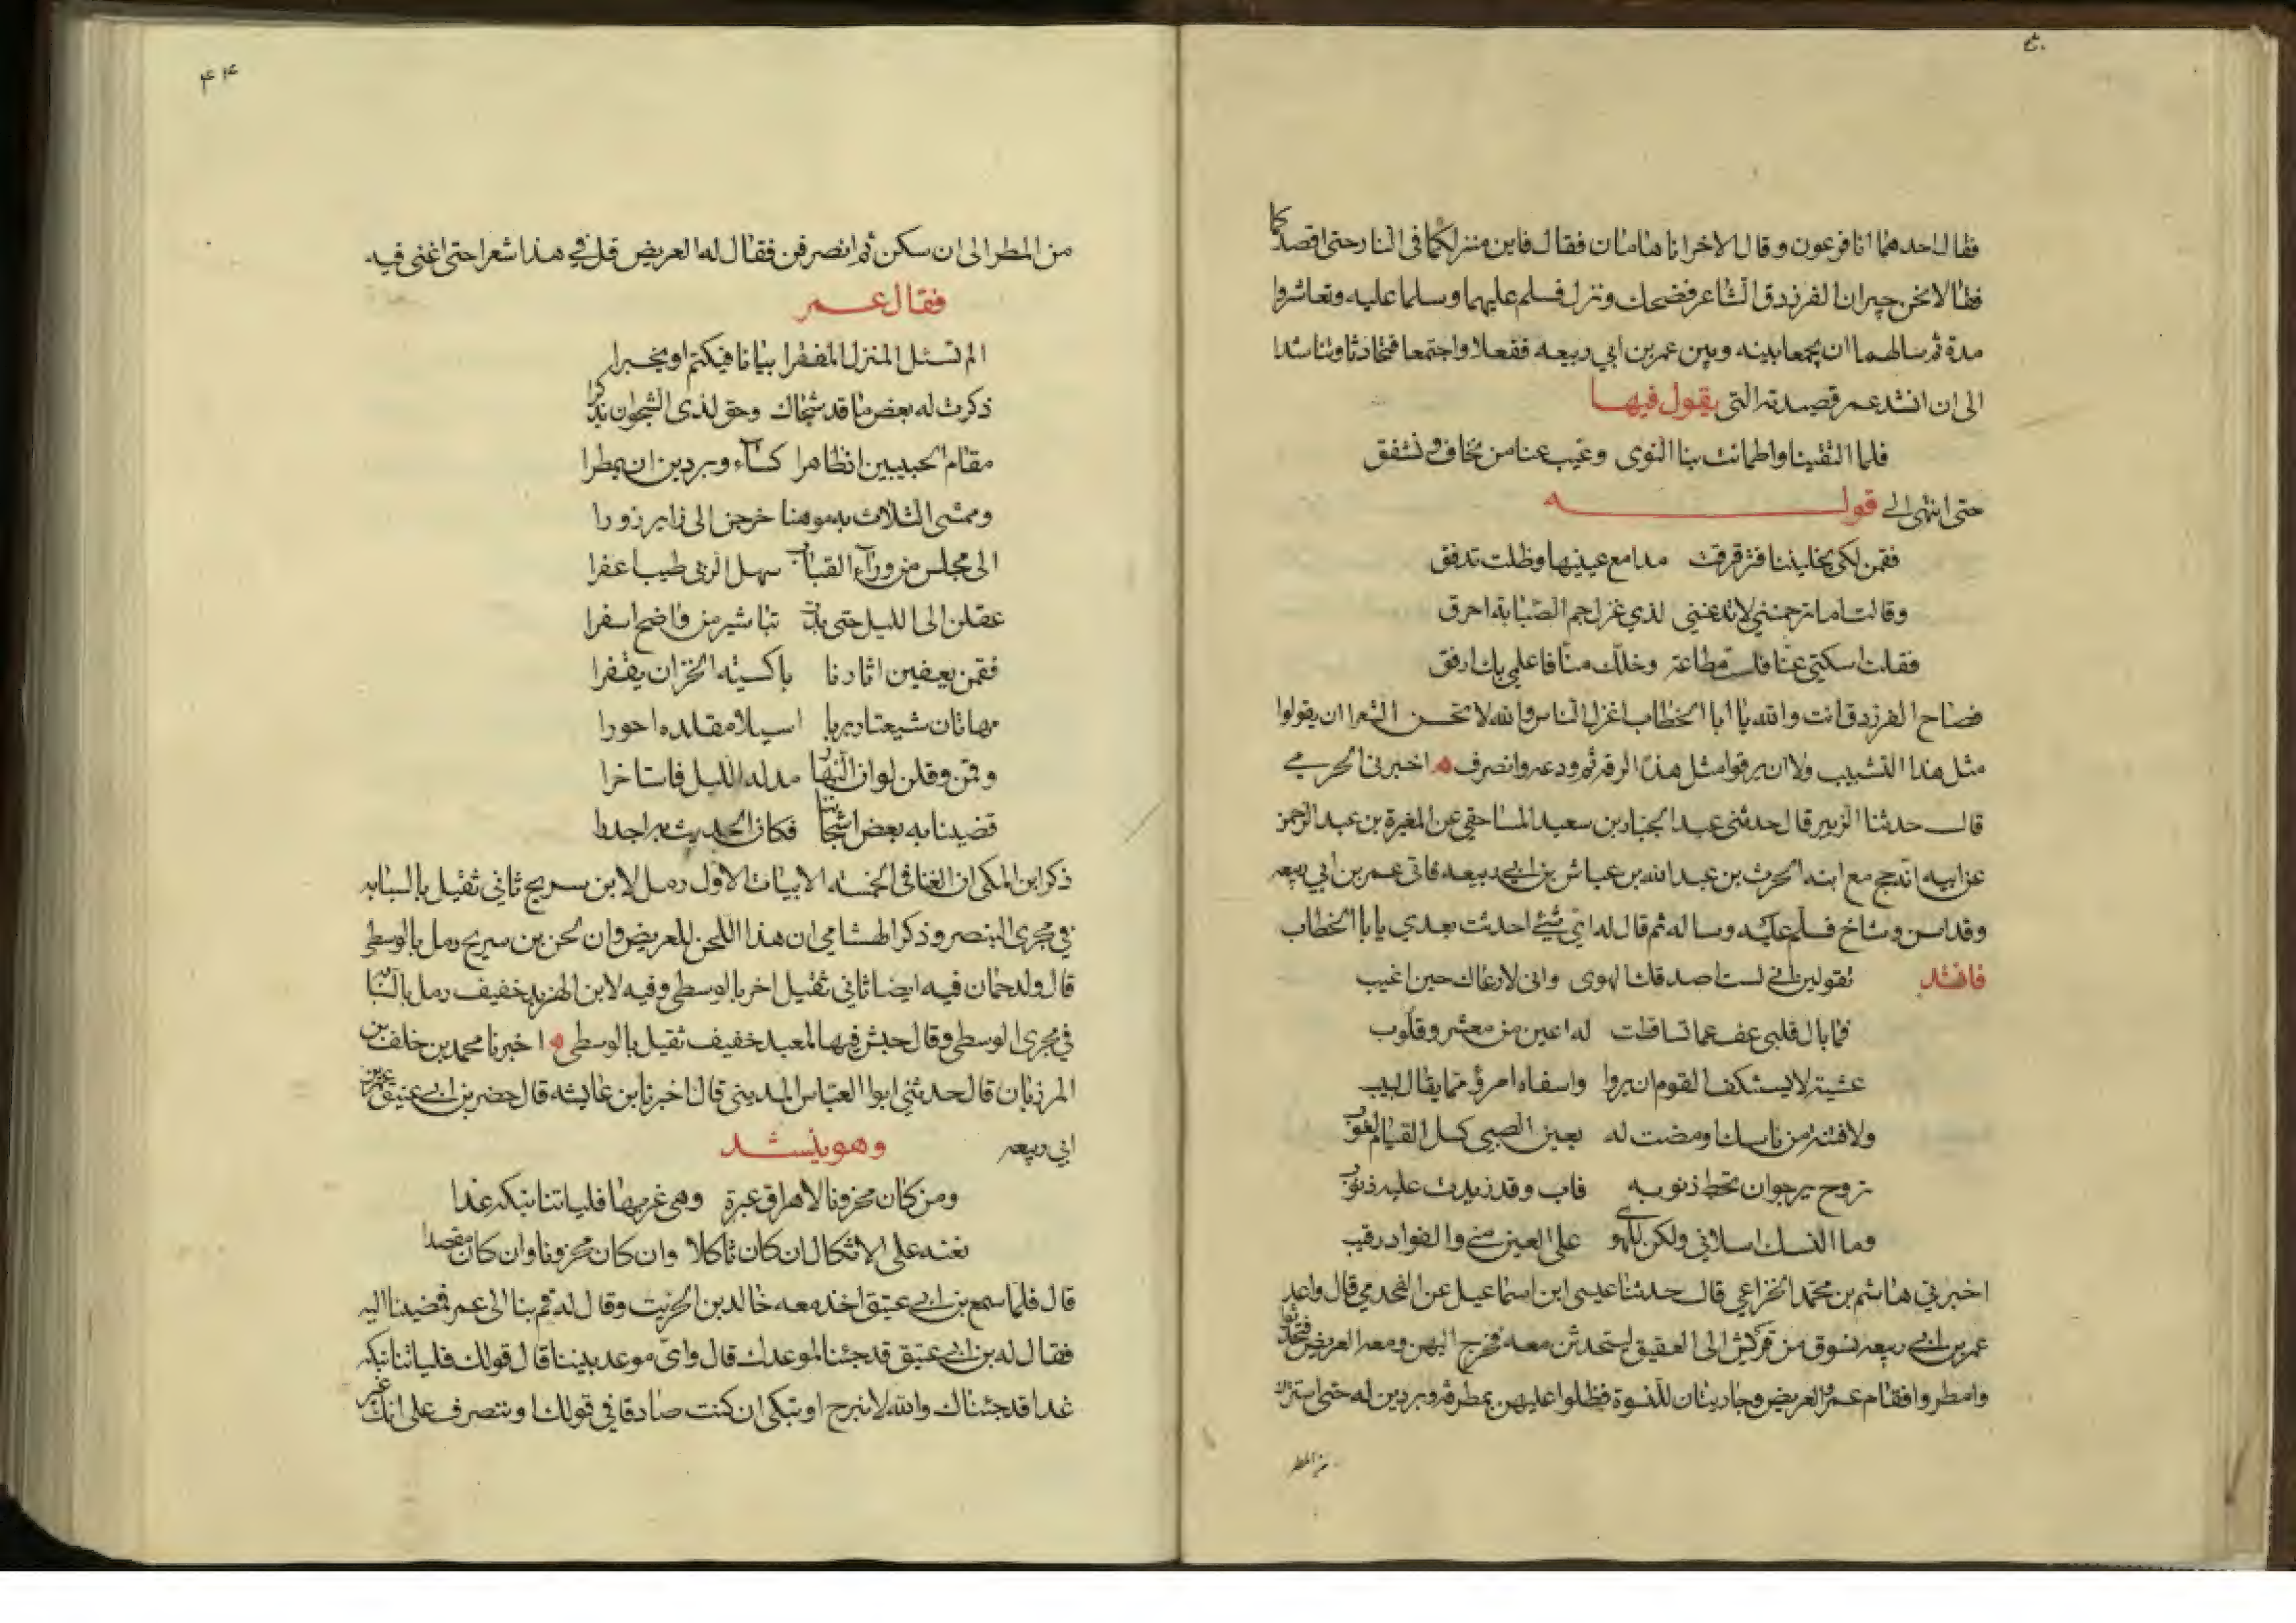 فقال احدهما انا فرعون وقال الاخر انا هامان فقال فاين منزلكما فى النار حتى اقصدكما
فقالا نحن جيران الفرزدق الشاعر فضحك ونزل فسلم عليهما وسلما عليه وتعاشروا
مدة ثم سالهما ان يجمعا بينه وبين عمر بن ابي ربيعه ففعلا واجتمعا فتحادثا وتناشدا
الى ان انشد عمر قصيدته التى يقول فيها
فلما التقينا واطمانت بنا النوى وغيب عنا من نخاف ونشفق
حتى انتهى الى قوله
فقمن لكى يخليننا فترقرقت مدامع عينيها وظلت تدفق
وقالت اما ترحمننى لا تدعننى لذي غزل جم الصبابة اخرق
فقلن اسكتى عنا فلست مطاعة وخلك منا فاعلمى بك ارفق
فصاح الفرزدق انت والله يا ابا الخطاب اغزل الناس والله لا يحسن الشعرا ان يقولوا
مثل هذا التشبيب ولا ان يرقوا مثل هذا الرقه ثم ودعه وانصرف ه اخبرنى الحرمي
قال حدثنا الزبير قال حدثنى عبد الجبار بن سعيد المساحقي عن المغيرة بن عبد الرحمن
عن ابيه انه حج مع ابنه الحرث بن عبد الله بن عياش بن ابى ربيعه فاتى عمر بن ابي ربيعه
وقد اسن وشاخ فسلم عليه وساله ثم قال له اي شئ احدثت بعدي يا با الخطاب
فانشد تقولين انى لست اصدقك الهوى وانى لا ارعاك حين اغيب
فما بال قلبى عف عما تساقطت له اعين من معشر وقلوب
عشية لا يستنكف القوم ان يروا واسفاه امرؤ مما يقال لبيب
ولا فتنة من ناسك اومضت له بعين الصبى كسل القيام لعوب
تروح يرجو ان تحط ذنوبه فاب وقد زيدت عليه ذنوب
وما النسك اسلانى ولكن للهو على العين منى والفواد رقيب
اخبرني هاشم بن محمد الخزاعي قال حدثنا عيسى ابن اسماعيل عن القحدمي قال واعد
عمر بن ابى ربيعه نسوة من قريش الى العقيق ليتحدثن معه فخرج اليهن ومعه الغريض فتحدثوا
وامطروا فقام عمر والغريض وجاريتان للنسوة فظلوا عليهن بمطرفه وبردين له حتى استترن
من المطر
٤٤
من المطر الى ان سكن ثم انصرفن فقال له العريض قل في هذا شعرا حتى اغنى فيه
فقال عمر
الم تسئل المنزل المقفرا بيانا فيكتم او يخبرا
ذكرت له بعض ما قد شجاك وحق لذى الشجو ان يذكرا
مقام الحبيبين اذ ظاهرا كساء وبردين ان يمطرا
وممشى الثلاث به موهنا خرجن الى زاير زورا
الى مجلس من وراء القباب سهل الربى طيب اعفرا
عقلن الى الليل حتى بدت تباشير من واضح اسفرا
فقمن يعفين اثارنا باكسية الخز ان يقفرا
مهاتان شيعتا ربربا اسيلا مقلده احورا
وقمن وقلن لو ان النهار مد له الليل فاستاخرا
قضينا به بعض اشجاننا فكان الحديث به اجدرا
ذكر ابن المكى ان الغنا فى الخمسه الابيات الاول رمل لابن سريج ثاني ثقيل بالسبابه
في مجرى البنصر وذكر الهشامي ان هذا اللحن للعريض وان لحن بن سريج رمل بالوسطى
قال ولدحمان فيه ايضا ثاني ثقيل اخر بالوسطى وفيه لابن الهربد خفيف رمل بالسبابه
في مجرى الوسطى وقال حبش فيها لمعبد خفيف ثقيل بالوسطى ه اخبرنا محمد بن خلف بن
المرزبان قال حدثنى ابو العباس المدينى قال اخبرنا بن عايشه قال حضر بن ابى عتيق عمر بن
ابي ربيعه وهو ينشد
ومن كان محزونا لاهراق عبرة وهى غربها فلياتنا نبكه غدا
نعنه على الاثكال ان كان ثاكلا وان كان محزونا وان كان مقصدا
قال فلما سمع بن ابى عتيق اخذ معه خالد بن الخريت وقال له قم بنا الى عمر فمضينا اليه
فقال له بن ابى عتيق قد جئنا لموعدك قال واى موعد بيننا قال قولك فلياتنا نبكه
غدا قد جئناك والله لا نبرح او تبكى ان كنت صادقا في قولك او ننصرف على انك غير